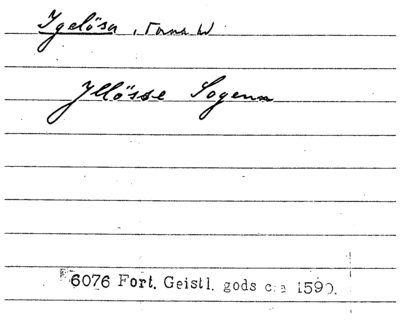 Igelösa, Torna W
Jllösse Sogenn
6076 Fort. Geistl. gods c:a 1590.